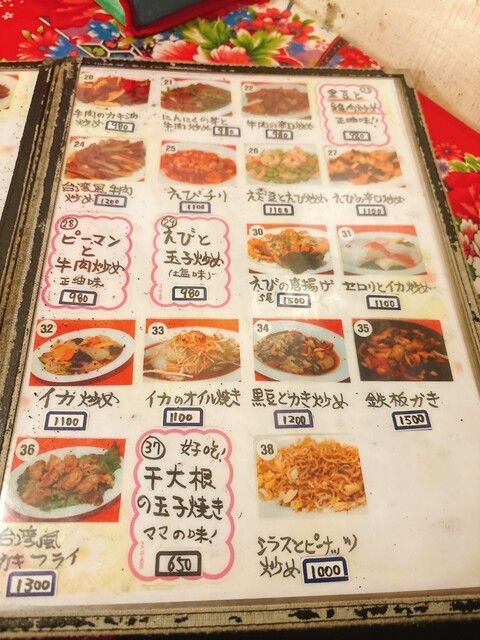 20
牛肉のカキ油
炒め 980
21
にんにくの茎と
牛肉炒め 980
22
牛肉の辛口炒め
980
黒豆と
鶏肉炒め
正油味!!
980
24
台湾風牛肉
炒め 1200
25
えびチリ
1100
26
枝豆とえび炒め
1100
27
えびの辛口炒め
1100
28
ピーマン
と
牛肉炒め
正油味
980
29
えびと
玉子炒め
(塩味)
980
30
えびの唐揚げ
5尾 1500
31
セロリとイカ炒め
1100
32
イカ炒め
1100
33
イカのオイル焼き
1100
34
黒豆とかき炒め
1200
35
鉄板かき
1500
36
台湾風
カキフライ
1300
37 好吃!
干大根
の玉子焼き
ママの味!
650
38
シラスとピーナッツ
炒め 1000